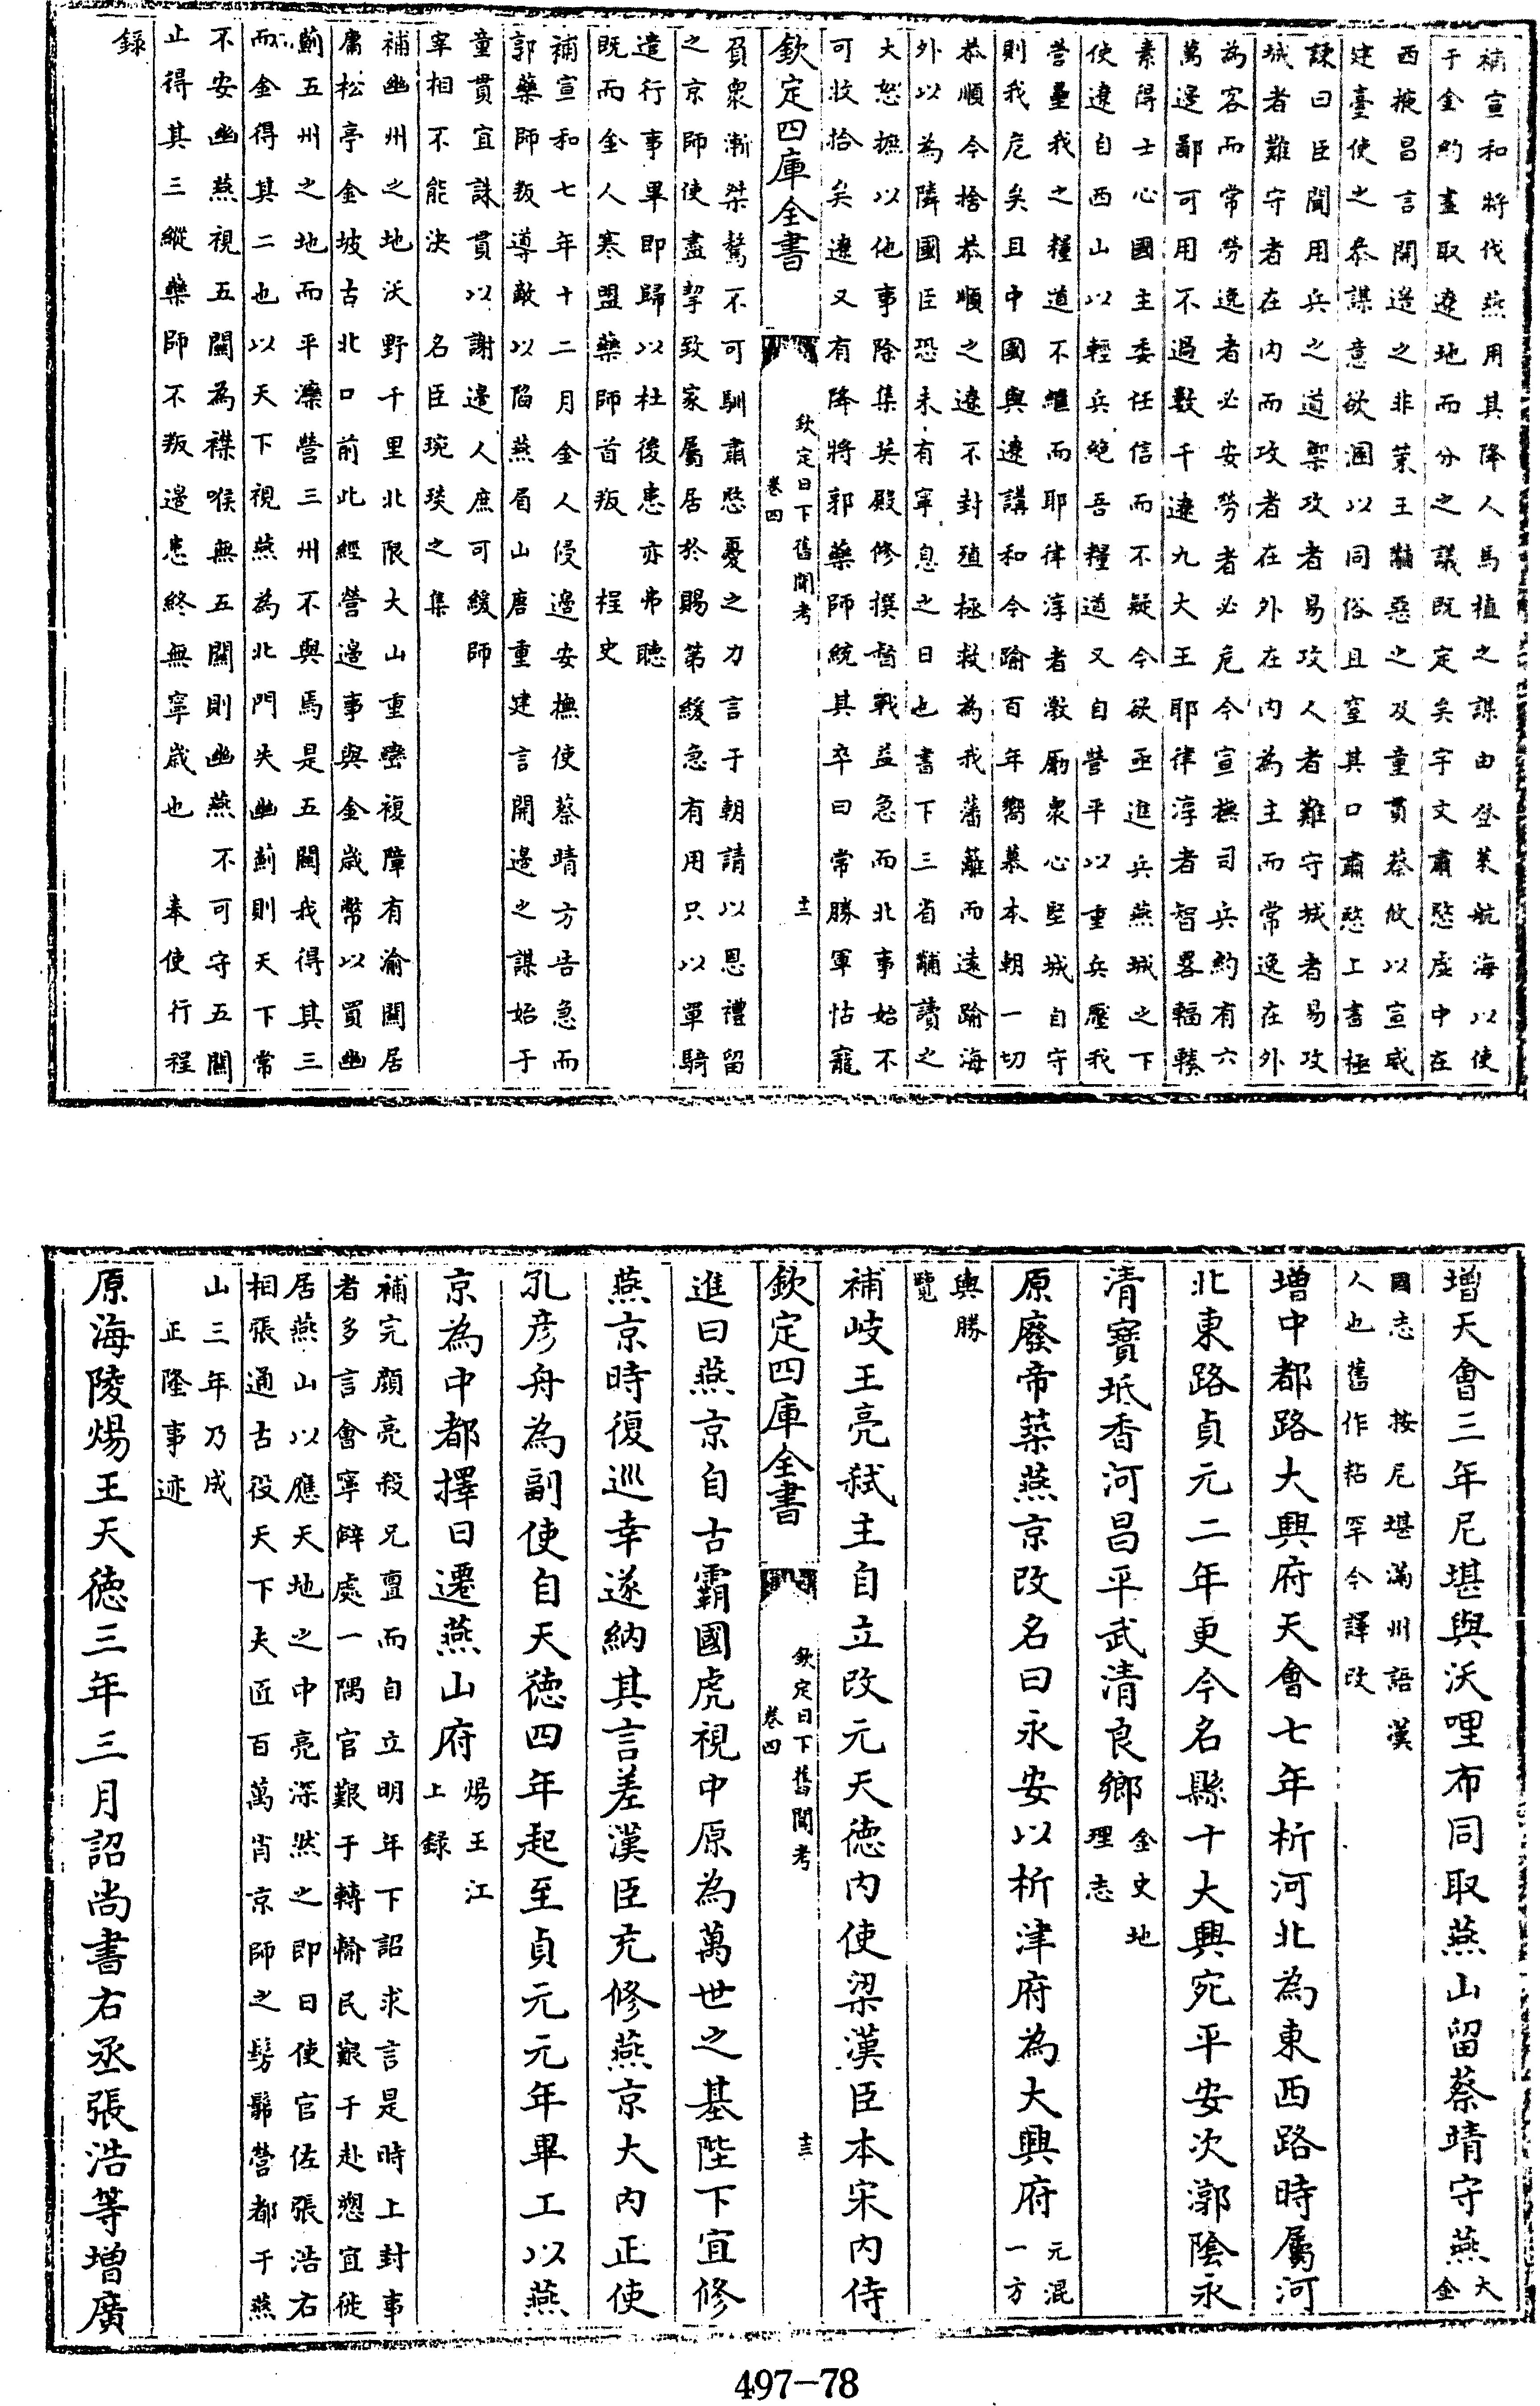 補宣和將伐燕用其降人馬植之謀由登萊航海以使
于金約盡取遼地而分之議既定矣宇文肅愍虛中在
西掖昌言開邊之非策王黼惡之及童貫蔡攸以宣威
建臺使之叅謀意欲溷以同俗且窒其口肅愍上書極
諫曰臣聞用兵之道禦攻者易攻人者難守城者易攻
城者難守者在内而攻者在外在内為主而常逸在外
為客而常勞逸者必安勞者必危今宣撫司兵約有六
萬邊鄙可用不過數千遼九大王耶律淳者智畧輻輳
素得士心國主委任信而不疑今欲亟進兵燕城之下
使遼自西山以輕兵絶吾糧道又自營平以重兵壓我
營壘我之糧道不繼而耶律淳者激勵衆心堅城自守
則我危矣且中國與遼講和今踰百年嚮慕本朝一切
恭順今捨恭順之遼不封殖拯救為我藩籬而遠踰海
外以為隣國臣恐未有寧息之日也書下三省黼讀之
大怒摭以他事除集英殿修撰督戰益急而北事始不
可收拾矣遼又有降將郭藥師統其卒曰常勝軍怙寵
欽定四庫全書
欽定日下舊聞考
卷四
十二
負衆漸桀驁不可馴肅愍憂之力言于朝請以恩禮留
之京師使盡挈致家屬居於賜第緩急有用只以單騎
遣行事畢即歸以杜後患亦弗聴
既而金人寒盟藥師首叛 桯史
補宣和七年十二月金人侵邊安撫使蔡靖方告急而
郭藥師叛導敵以陷燕眉山唐重建言開邊之謀始于
童貫宜誅貫以謝邊人庶可緩師
宰相不能決 名臣琬琰之集
補幽州之地沃野千里北限大山重巒複障有渝關居
庸松亭金坡古北口前此經營邊事與金歲幣以買幽
薊五州之地而平灤營三州不與焉是五關我得其三
而金得其二也以天下視燕為北門失幽薊則天下常
不安幽燕視五關為襟喉無五關則幽燕不可守五關
止得其三縱藥師不叛邊患終無寧歲也 奉使行程
錄
增天會三年尼堪與沃哩布同取燕山留蔡靖守燕 大
金
國志 按尼堪滿州語漢
人也舊作粘罕今譯改
增中都路大興府天會七年析河北為東西路時屬河
北東路貞元二年更今名縣十大興宛平安次漷隂永
清寶坻香河昌平武清良鄉 金史地
理志
原廢帝築燕京改名曰永安以析津府為大興府 元混
一方
輿勝
覽
補岐王亮弑主自立改元天徳内使梁漢臣本宋内侍
欽定四庫全書
欽定日下舊聞考
卷四
十三
進曰燕京自古霸國虎視中原為萬世之基陛下宜修
燕京時復巡幸遂納其言差漢臣充修燕京大内正使
孔彦舟為副使自天徳四年起至貞元元年畢工以燕
京為中都擇日遷燕山府 煬王江
上錄
補完顔亮殺兄亶而自立明年下詔求言是時上封事
者多言會寧僻處一隅官艱于轉輸民艱于赴愬宜徙
居燕山以應天地之中亮深然之即日使官佐張浩右
相張通古役天下夫匠百萬肖京師之髣髴營都于燕
山三年乃成
正隆事迹
原海陵煬王天徳三年三月詔尚書右丞張浩等增廣
497-78